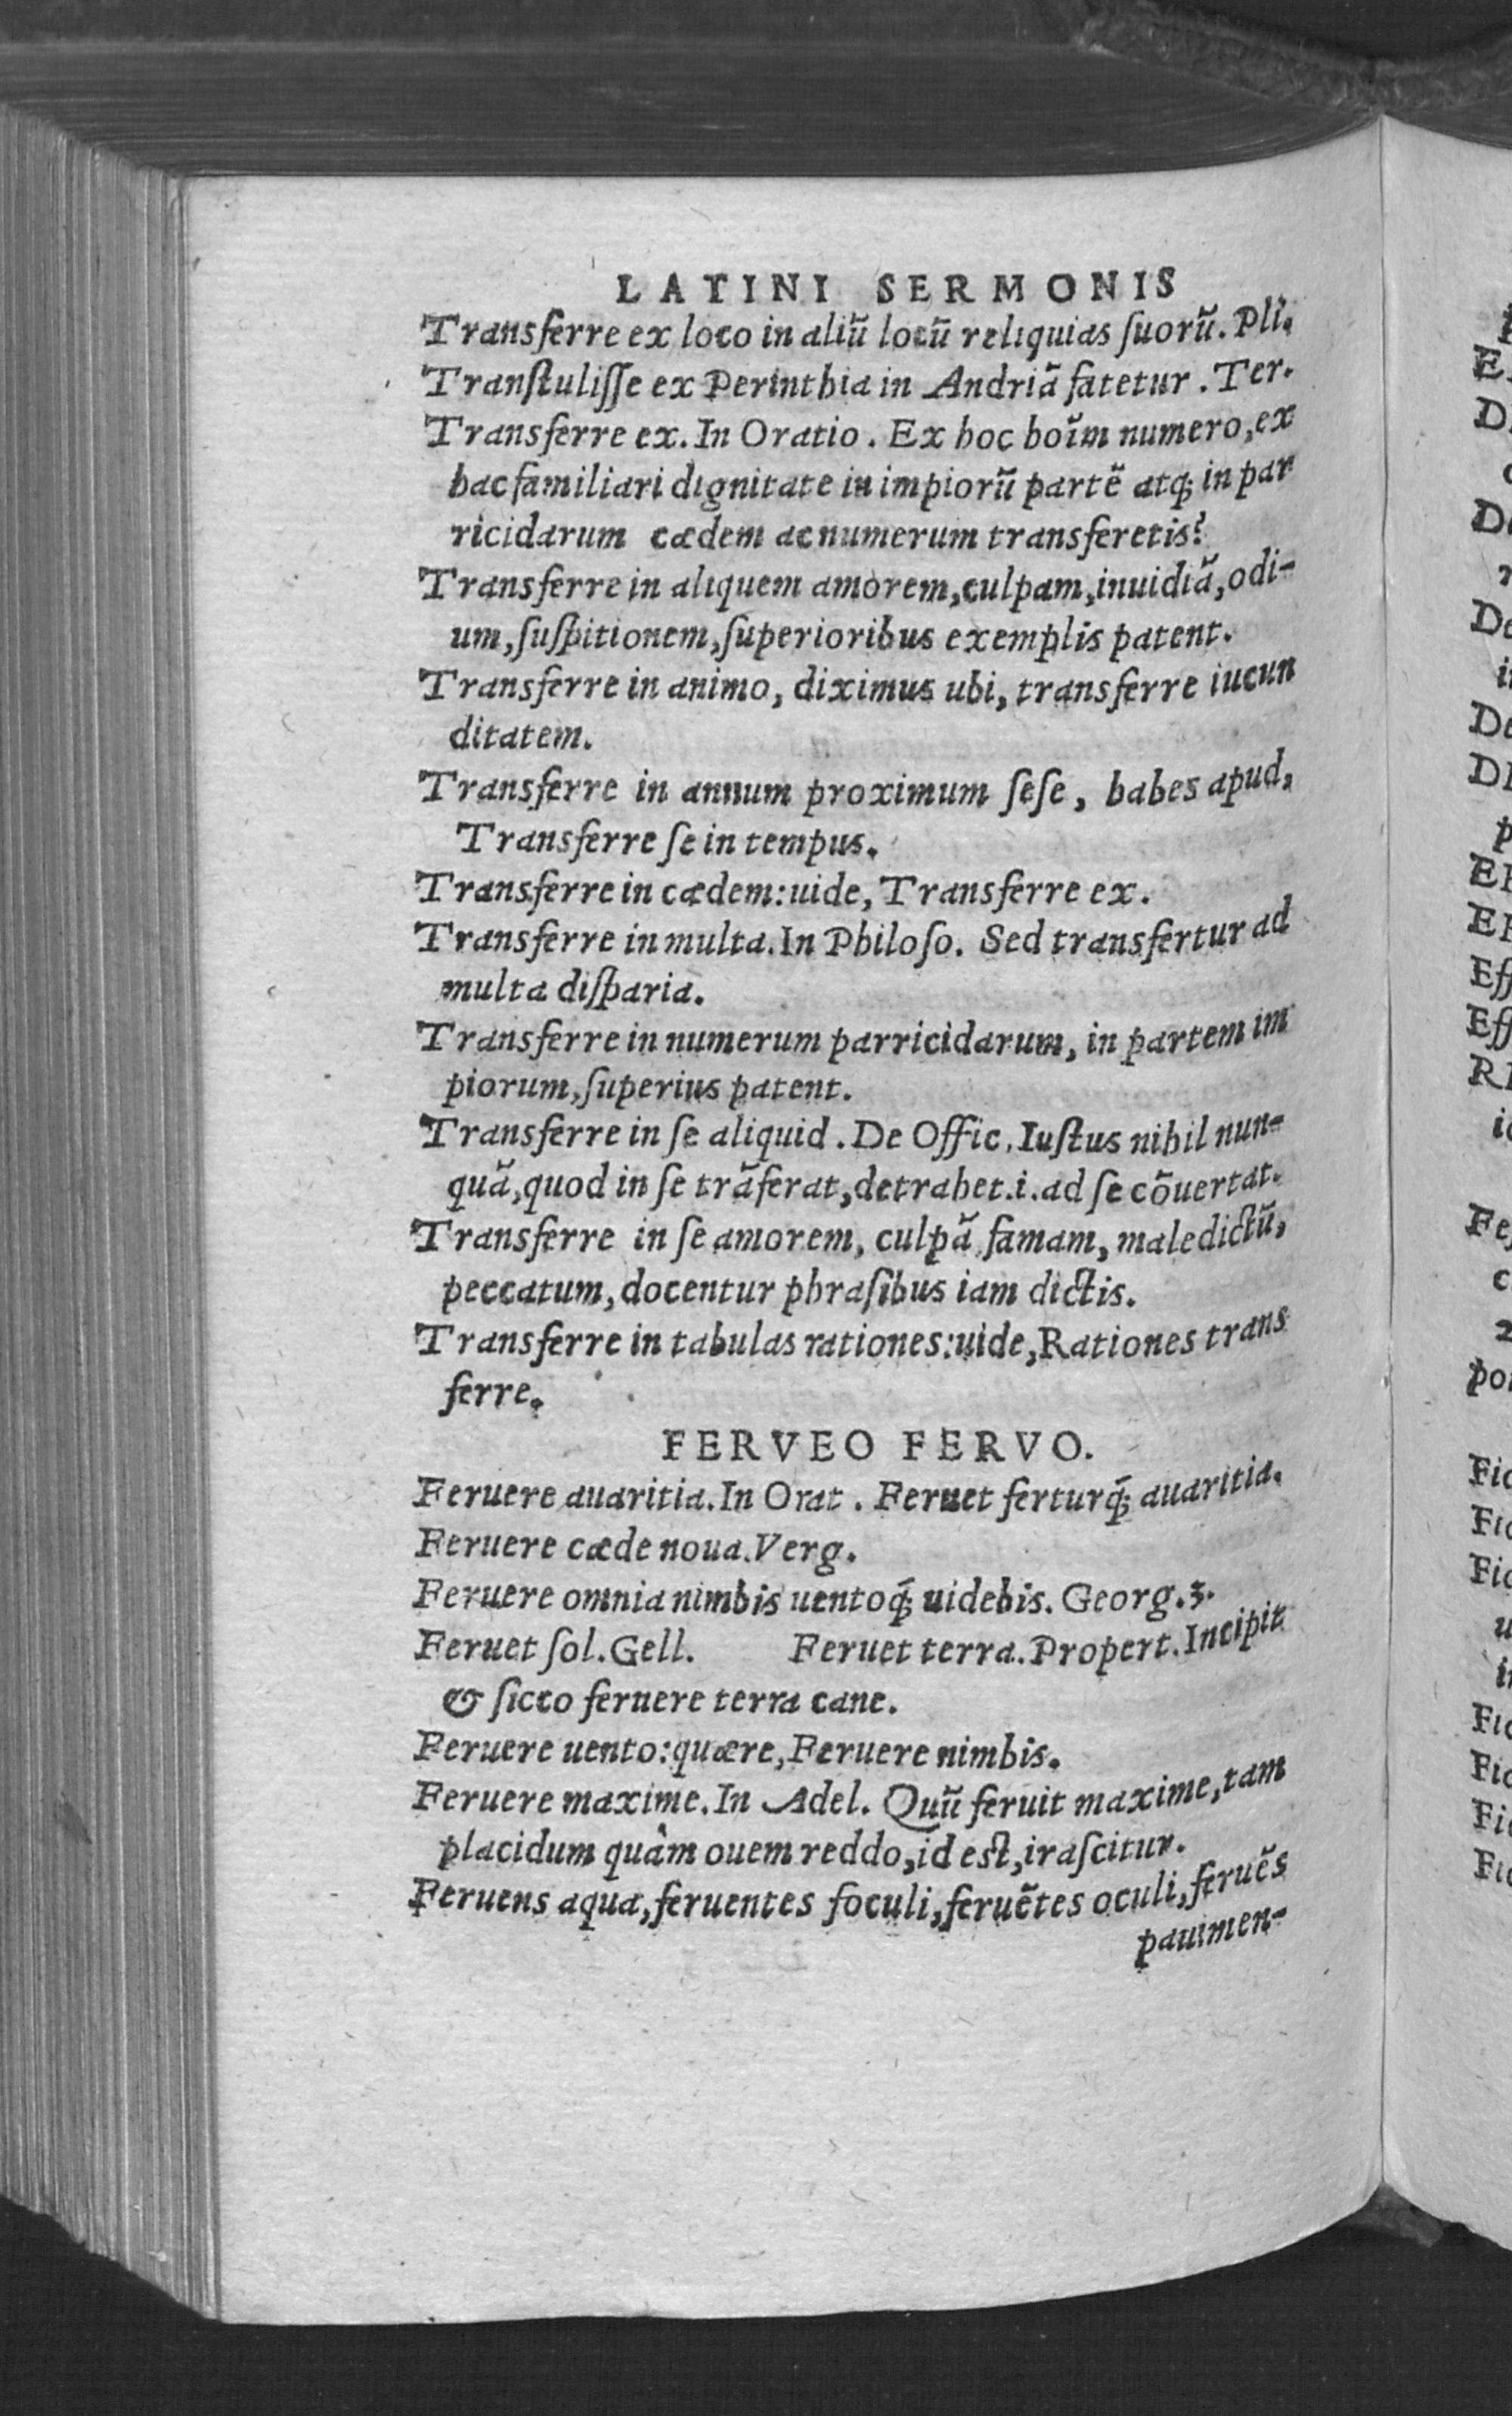 LATINI SERMONIS
Transferre ex loco in aliũ locũ reliquias ſuorũ. Pli.
Tranſtuliſſe ex Perinthia in Andriã fatetur. Ter.
Transferre ex. In Oratio. Ex hoc hoĩm numero, ex
hac familiari dignitate in impiorũ partẽ atq; in par
ricidarum cædem ac numerum transferetis?
Transferre in aliquem amorem, culpam, inuidiã, odi-
um, ſuſpitionem, ſuperioribus exemplis patent.
Transferre in animo, diximus ubi, transferre iucun
ditatem.
Transferre in annum proximum ſeſe, habes apud,
Transferre ſe in tempus.
Transferre in cædem: uide, Transferre ex.
Transferre in multa. In Philoſo. Sed transfertur ad
multa diſparia.
Transferre in numerum parricidarum, in partem im
piorum, ſuperius patent.
Transferre in ſe aliquid. De Offic. Iuſtus nihil nun-
quã, quod in ſe trãſferat, detrahet. i. ad ſe cõuertat.
Transferre in ſe amorem, culpã, famam, maledictũ,
peccatum, docentur phraſibus iam dictis.
Transferre in tabulas rationes: uide, Rationes trans
ferre.
FERVEO FERVO.
Feruere auaritia. In Orat. Feruet ferturq́; auaritia.
Feruere cæde noua. Verg.
Feruere omnia nimbis uentoq́; uidebis. Georg. 3.
Feruet ſol. Gell. Feruet terra. Propert. Incipit
& ſicco feruere terra cane.
Feruere uento: quære, Feruere nimbis.
Feruere maxime. In Adel. Quũ feruit maxime, tam
placidum quàm ouem reddo, id eſt, iraſcitur.
Feruens aqua, feruentes foculi, feruẽtes oculi, feruẽs
pauimen-